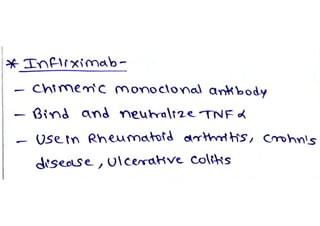 * Infliximab-
- Chimeric monoclonal antibody
- Bind and neutralize TNF α
- Use in Rheumatoid arthritis, Crohn's
disease, Ulcerative Colitis